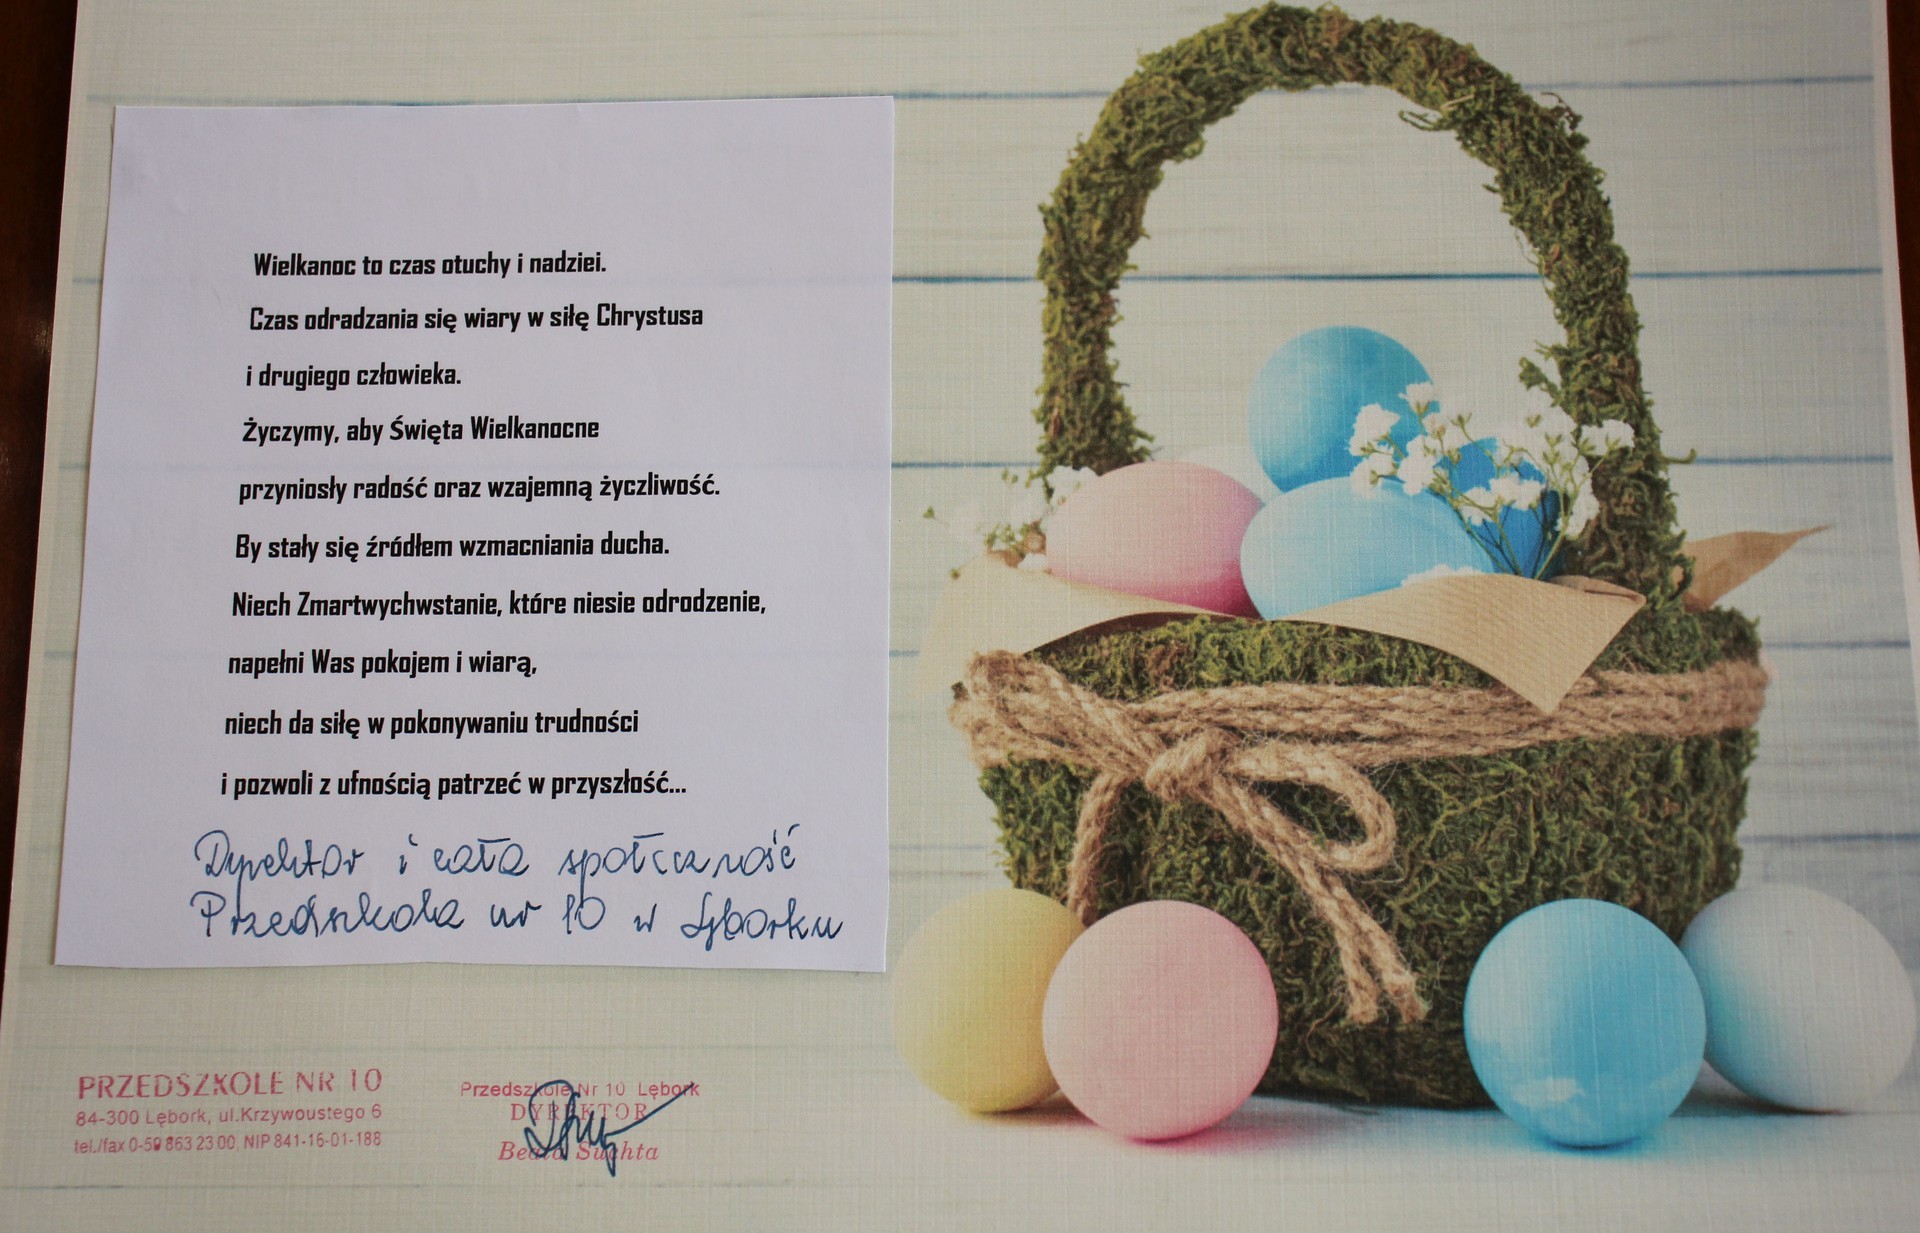 Wielkanoc to czas otuchy i nadziei.
Czas odradzania się wiary w siłę Chrystusa
i drugiego człowieka.
Życzymy, aby Święta Wielkanocne
przyniosły radość oraz wzajemną życzliwość.
By stały się źródłem wzmacniania ducha.
Niech Zmartwychwstanie, które niesie odrodzenie,
napełni Was pokojem i wiarą,
niech da siłę w pokonywaniu trudności
i pozwoli z ufnością patrzeć w przyszłość...
Dyrektor i cała społeczność
Przedszkola nr 10 w Lęborku
PRZEDSZKOLE NR 10
84-300 Lębork, ul.Krzywoustego 6
tel./fax 0-59 863 23 00, NIP 841-16-01-188
Przedszkole Nr 10 Lębork
DYREKTOR
Beata Suchta